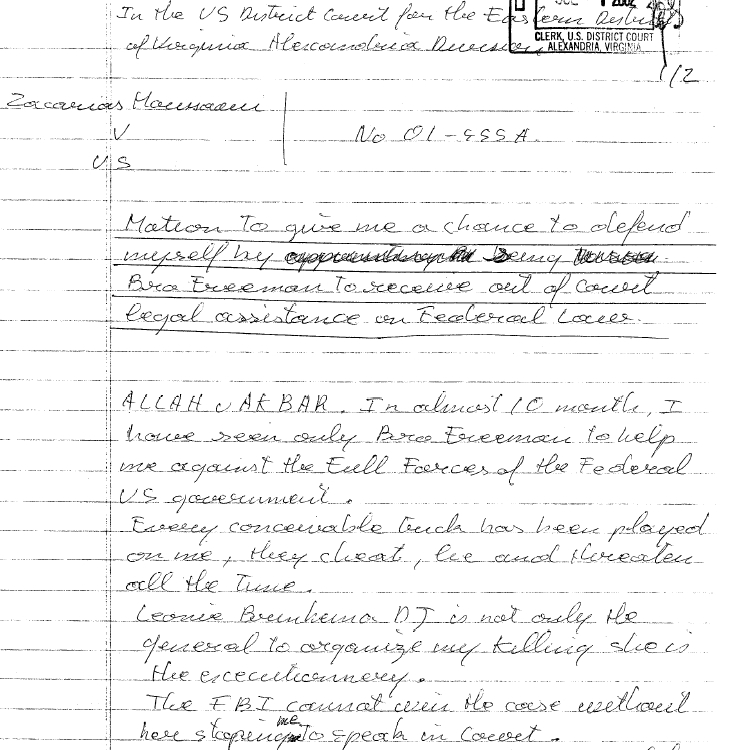 In the US District Court for the Eastern District
of Virginia Alexandria Division
2002
CLERK, U.S. DISTRICT COURT
ALEXANDRIA, VIRGINIA
1/2
Zacarias Moussaoui
V
No 01-455 A
US
Motion to give me a chance to defend
myself by being
Bro Freeman to receive out of Court
legal assistance on Federal Lawer.
ALLAH u AKBAR. In almost 10 month, I
have seen only Bro Freeman to help
me against the Full Forces of the Federal
US government.
Every conceivable trick has been played
on me, they cheat, lie and threaten
all the time.
Leonie Brinkema DJ is not only the
general to organize my killing she is
the executionnery.
The FBI cannot win the case without
her stoping me to speak in Court.